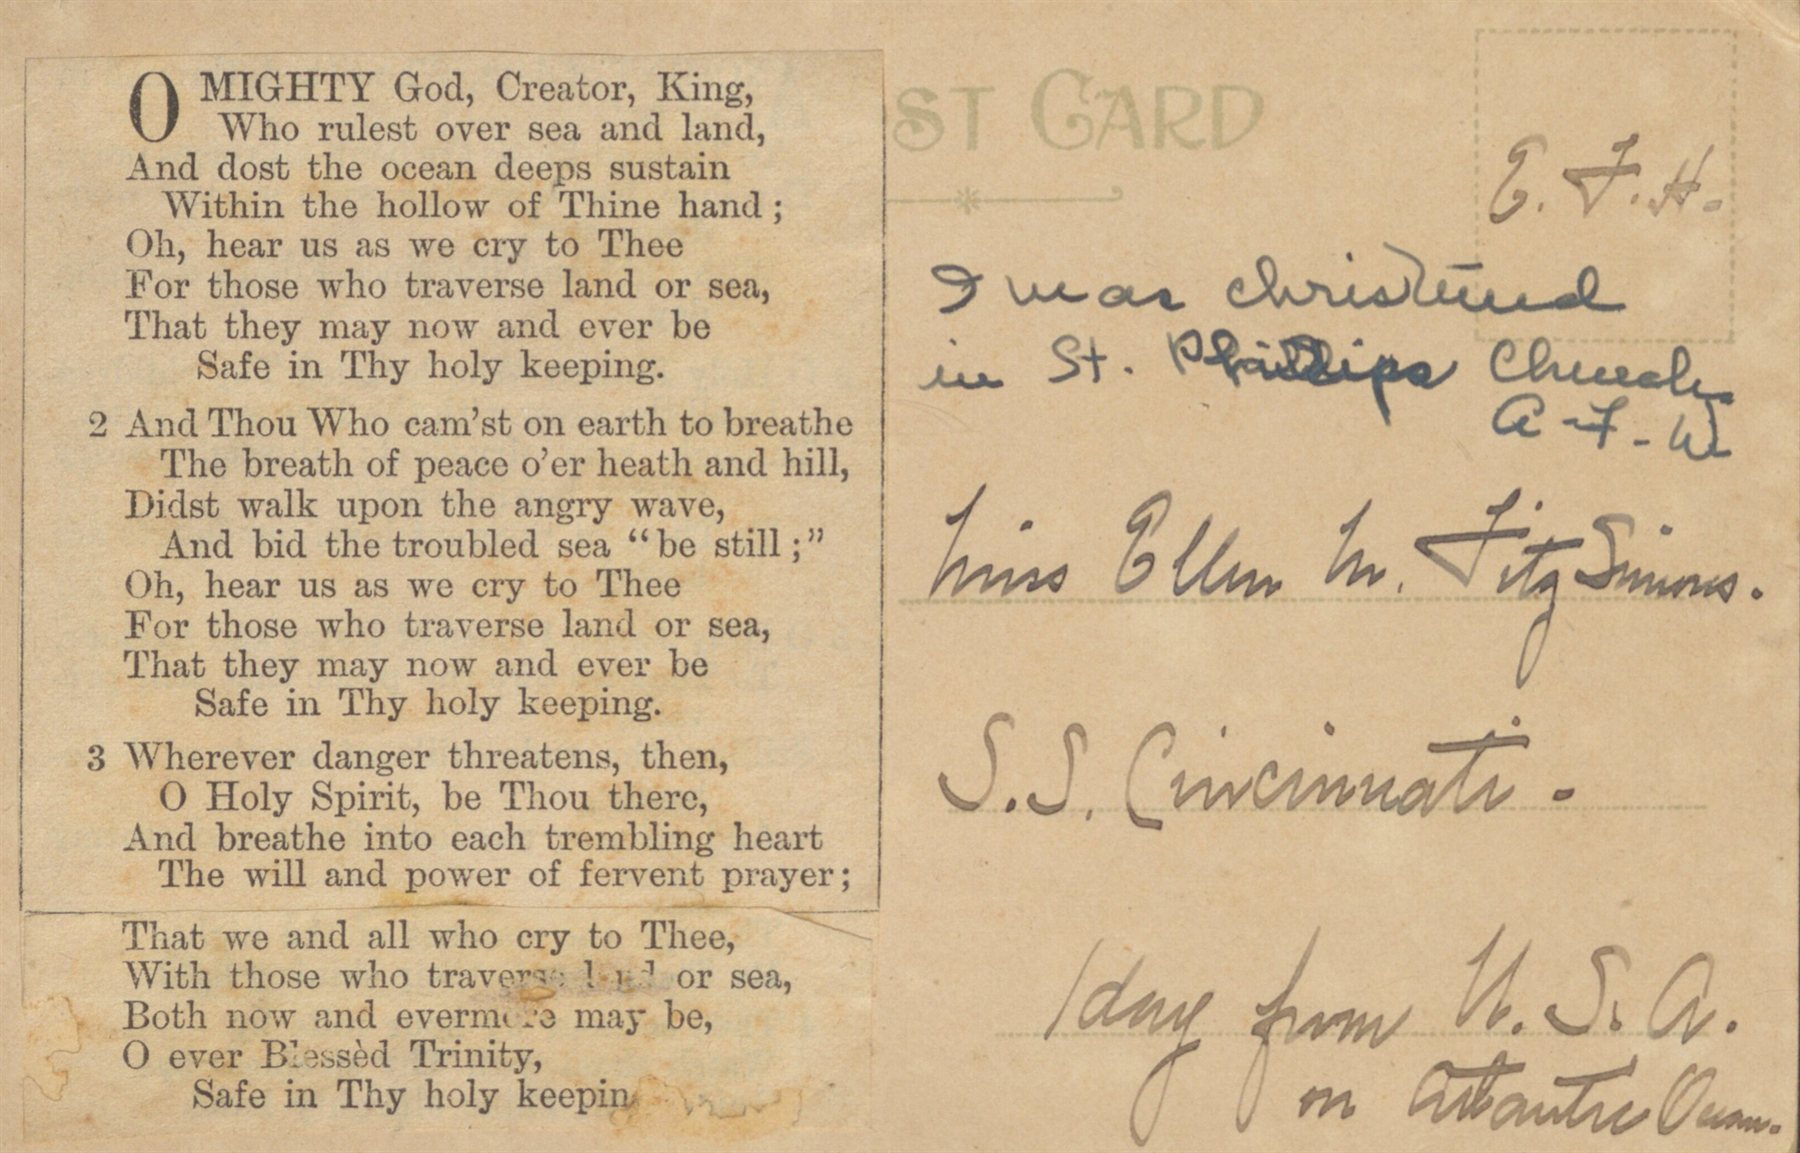 O MIGHTY God, Creator, King,
Who rulest over sea and land,
And dost the ocean deeps sustain
Within the hollow of Thine hand;
Oh, hear us as we cry to Thee
For those who traverse land or sea,
That they may now and ever be
Safe in Thy holy keeping.
2 And Thou Who cam'st on earth to breathe
The breath of peace o'er heath and hill,
Didst walk upon the angry wave,
And bid the troubled sea "be still;"
Oh, hear us as we cry to Thee
For those who traverse land or sea,
That they may now and ever be
Safe in Thy holy keeping.
3 Wherever danger threatens, then,
O Holy Spirit, be Thou there,
And breathe into each trembling heart
The will and power of fervent prayer;
That we and all who cry to Thee,
With those who traverse land or sea,
Both now and evermore may be,
O ever Blessèd Trinity,
Safe in Thy holy keepin
ST CARD
E. F. H.
I was christened
in St. Phillips Church
A-F-W
Miss Ellen M. FitzSimons.
S.S. Cincinnati.
1 day from U.S.A.
on Atlantic Ocean.